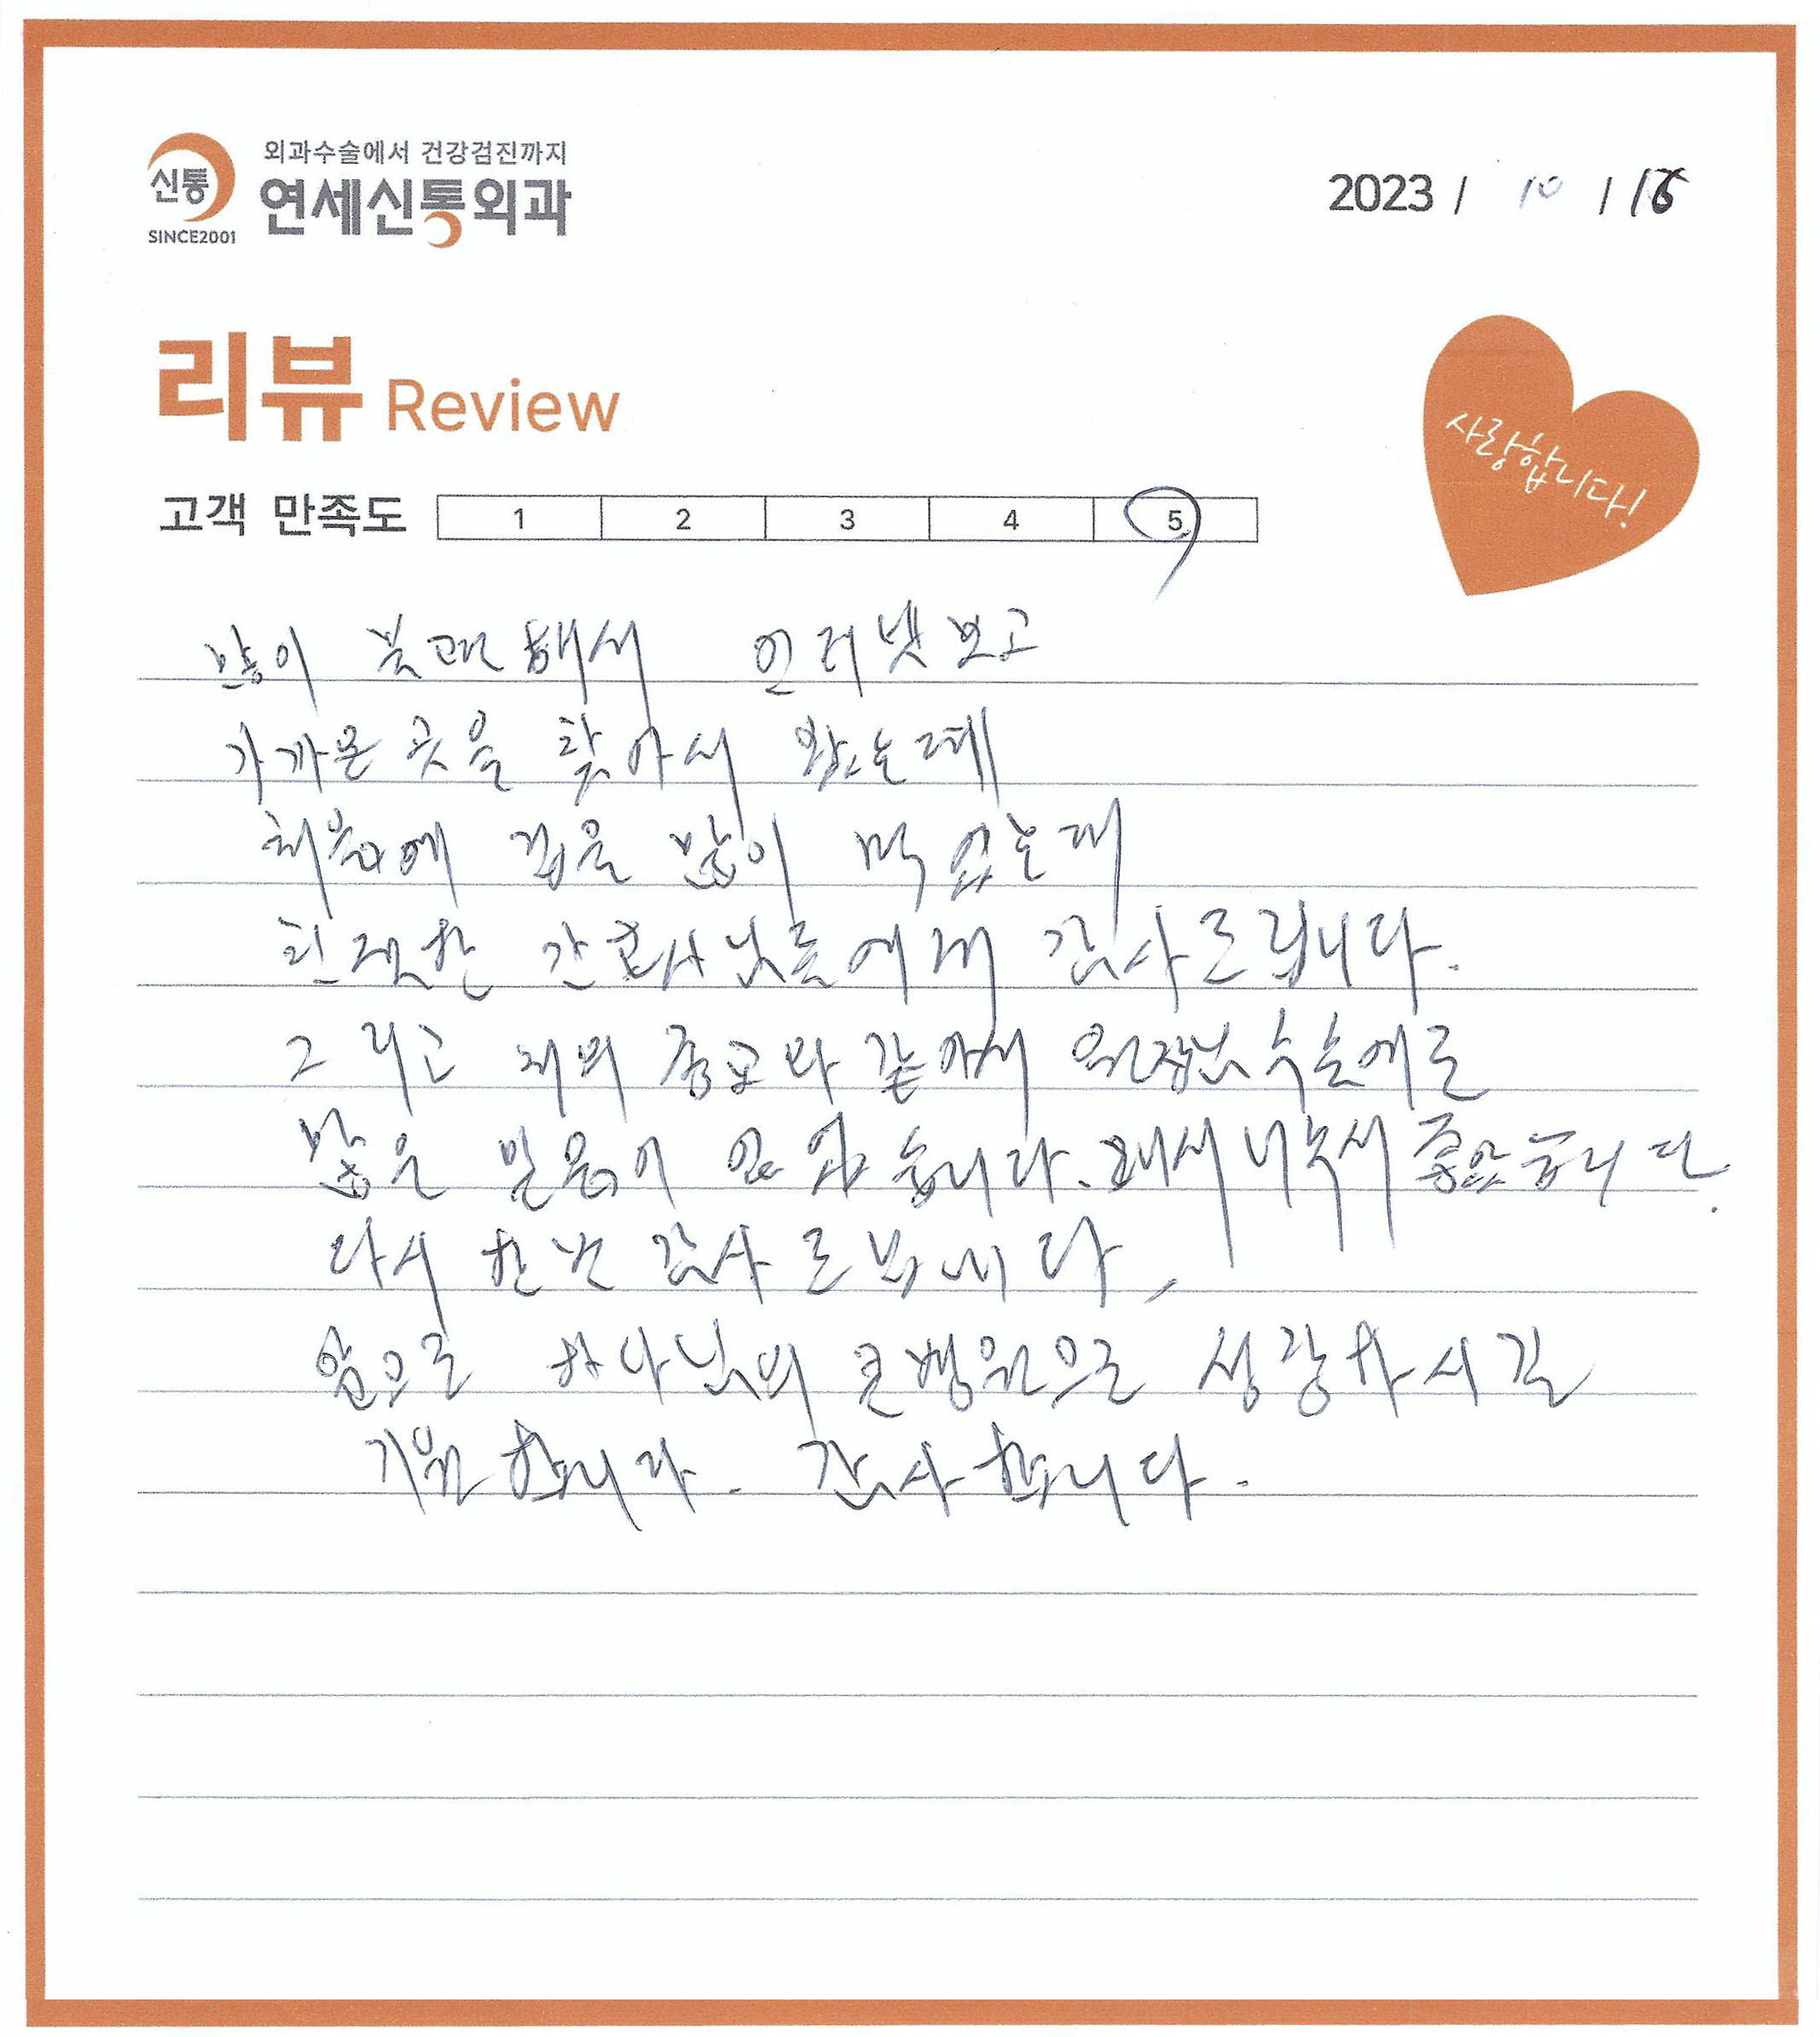 외과수술에서 건강검진까지
신통
연세신통외과
SINCE2001
2023 / 10 / 16
리뷰 Review
사랑합니다!
고객 만족도 1 2 3 4 5
많이 불편해서 인터넷보고
가까운 곳을 찾아서 왔는데
처음에 겁을 많이 먹었는데
친절한 간호사님들에게 감사드립니다.
그리고 저의 종교와 같아서 원장님 수술에도
많은 믿음이 있었습니다. 와서 너무 좋았습니다.
다시 한번 감사드립니다.
앞으로 하나님의 큰병원으로 성장하시길
기원합니다. 감사합니다.